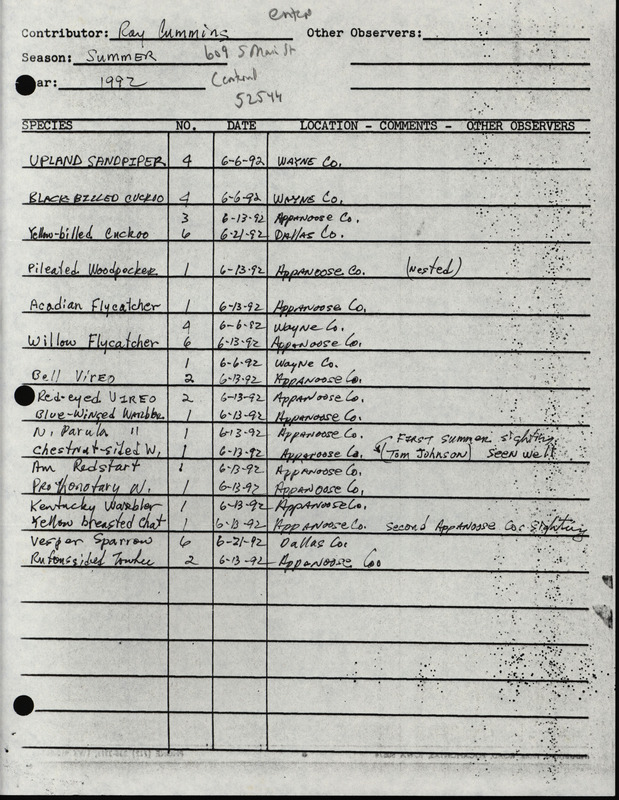 enter
Contributor: Ray Cummins Other Observers:
Season: SUMMER 609 S Main St
ar: 1992 Central
52544
SPECIES NO. DATE LOCATION - COMMENTS - OTHER OBSERVERS
UPLAND SANDPIPER 4 6-6-92 WAYNE Co.
BLACK BILLED CUCKOO 4 6-6-92 WAYNE Co.
3 6-13-92 Appanoose Co.
Yellow-billed Cuckoo 6 6-21-92 Dallas Co.
Pileated Woodpecker 1 6-13-92 Appanoose Co. (Nested)
Acadian Flycatcher 1 6-13-92 Appanoose Co.
4 6-6-92 Wayne Co.
Willow Flycatcher 6 6-13-92 Appanoose Co.
1 6-6-92 Wayne Co.
Bell Vireo 2 6-13-92 Appanoose Co.
Red-eyed Vireo 2 6-13-92 Appanoose Co.
Blue-Winged Warbler 1 6-13-92 Appanoose Co.
N. Parula " 1 6-13-92 Appanoose Co. First summer sighting
Chestnut-sided W. 1 6-13-92 Appanoose Co. (Tom Johnson) seen well
Am Redstart 1 6-13-92 Appanoose Co.
Prothonotary W. 1 6-13-92 Appanoose Co.
Kentucky Warbler 1 6-13-92 Appanoose Co.
Yellow breasted Chat 1 6-13-92 Appanoose Co. Second Appanoose Co. sighting
Vesper Sparrow 6 6-21-92 Dallas Co.
Rufous sided Towhee 2 6-13-92 Appanoose Co.